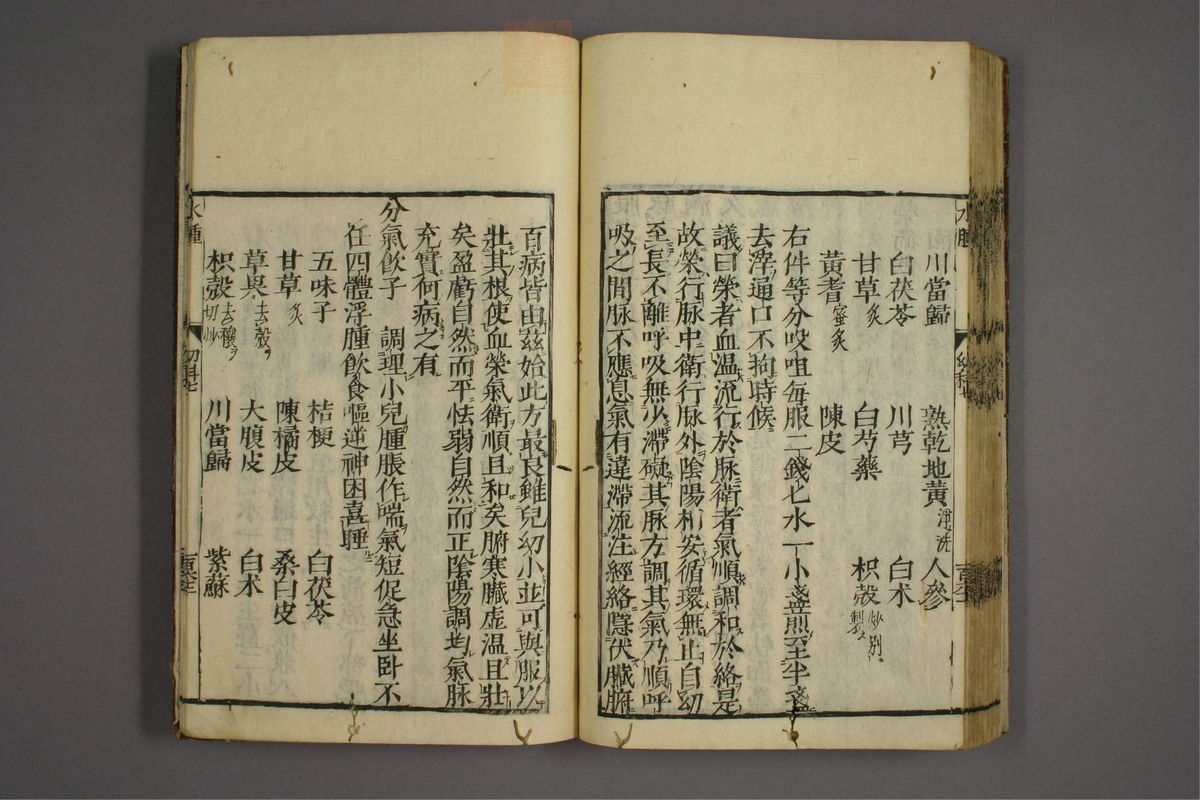 川當歸 熟乾地黃淨洗 人參
白茯苓 川芎 白朮
甘草炙 白芍藥 枳殻炒別製
黃耆蜜炙 陳皮
右件等分㕮咀每服二錢匕水一小盞煎至半盞
去滓通口不拘時候
議曰榮者血温流行於脉衛者氣順調和於絡是
故榮行脉中衛行脉外陰陽相安循環無止自幼
至長不離呼吸無少滯礙其脉方調其氣乃順呼
吸之間脉不應息氣有違滯流注經絡隱伏臟腑
百病皆由茲始此方最良雖兒幼小並可與服以
壯其根使血榮氣衛順且和矣腑寒臟虚温且壯
矣盈虧自然而平怯弱自然而正陰陽調均氣脉
充實何病之有
分氣飲子 調理小兒腫脹作喘氣短促急坐卧不
任四體浮腫飲食嘔逆神困喜睡
五味子 桔梗 白茯苓
甘草炙 陳橘皮 桑白皮
草果去殻ヲ 大腹皮 白朮
枳殻去穰ヲ切炒 川當歸 紫蘇
水腫